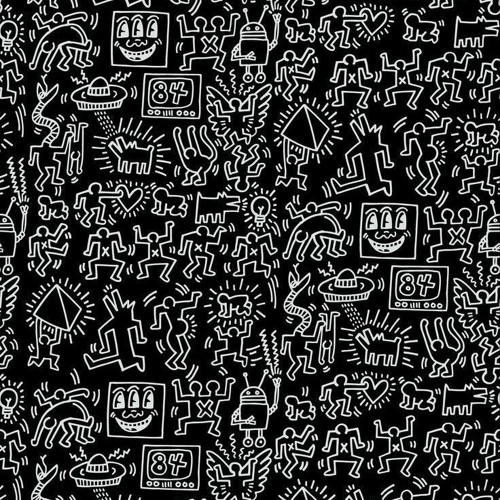 84
84
84